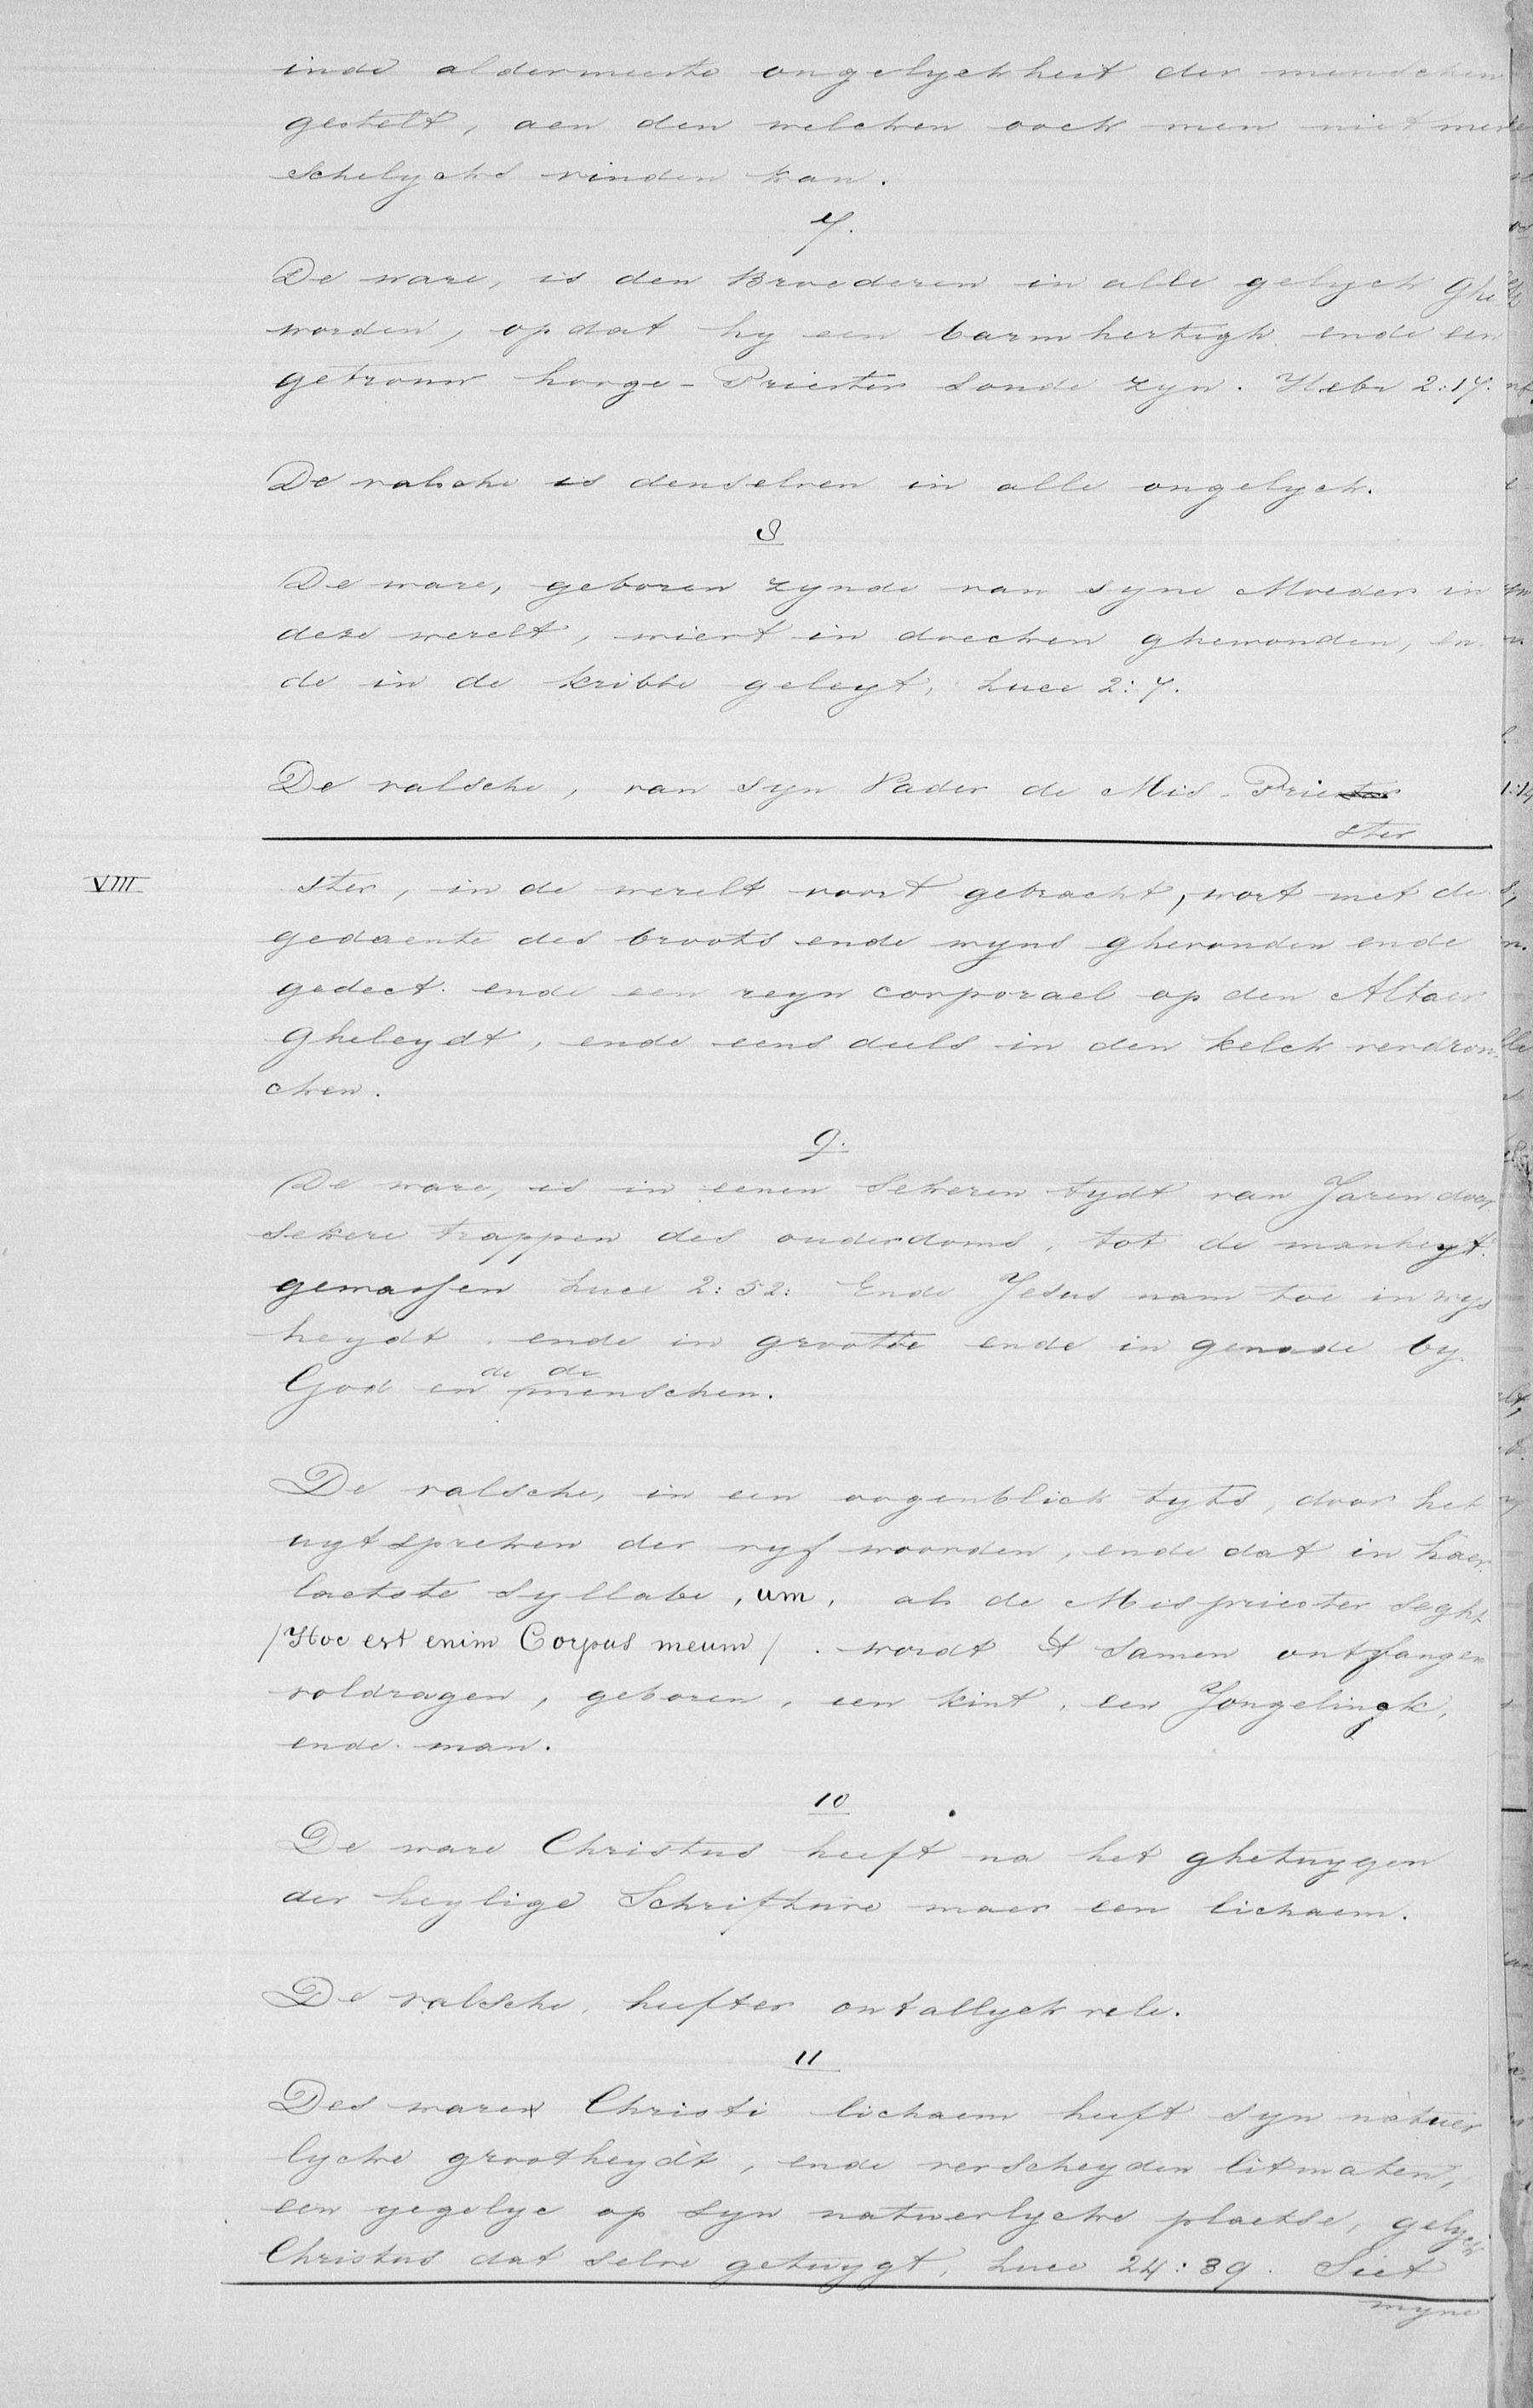 inde aldermeeste ongelyckheit der menschen
gestelt, aen den welcken oock men niet men
schelycks vinden kan.
7.
De ware, is den Broederen in alle gelyck ghe
worden, op dat hy een barmhertigh ende een
getrouw hooge-Priester soude zyn. Hebr 2:17.
De valsche is denselven in alle ongelyck.
8
De ware, geboren zynde van syne Moeder in
deze werelt, wiert in doecken ghewonden, en
de in de kribbe geleyt, Luce 2:7.
De valsche, van syn Vader de Mis-Priester
ster
VIII
ster, in de werelt voort gebracht, wort met de
gedaente des broots ende wyns ghevonden ende
gedect. ende een reyn corporael op den Altaer
gheleydt, ende eens deels in den kelck verdron-
cken.
9.
De ware, is in eenen sekeren tydt van Jaren door
sekere trappen des ouderdoms, tot de manheyt
gewassen Luce 2:52: Ende Jesus nam toe in wys
heydt. ende in grootte ende in genade by
de de
God en menschen.
De valsche, in een oogenblick tyts, door het
uytspreken der vyf woorden, ende dat in haer
laetste syllabe, um, als de Mispriester seght
(Hoc est enim Corpus meum). wordt 't samen ontfangen
voldragen, geboren, een kint, een Jongelingk,
ende man.
10
De ware Christus heeft na het ghetuygen
der heylige Schrifture maer een lichaem.
De valsche, heefter ontallyck vele.
11
Des waren Christi lichaem heeft syn natuer
lycke grootheydt, ende verscheyden litmaten,
een yegelyc op syn natuerlycke plaetse, gelyck
Christus dat selve getuygt, Luce 24:39. Siet
myne